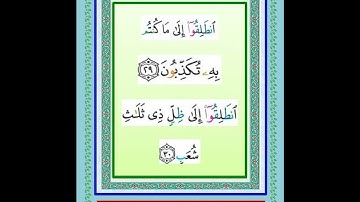 ٱنطَلِقُوٓا۟ إِلَىٰ مَا كُنتُم
بِهِۦ تُكَذِّبُونَ ﴿٢٩﴾
ٱنطَلِقُوٓا۟ إِلَىٰ ظِلٍّ ذِى ثَلَـٰثِ
شُعَبٍ ﴿٣٠﴾